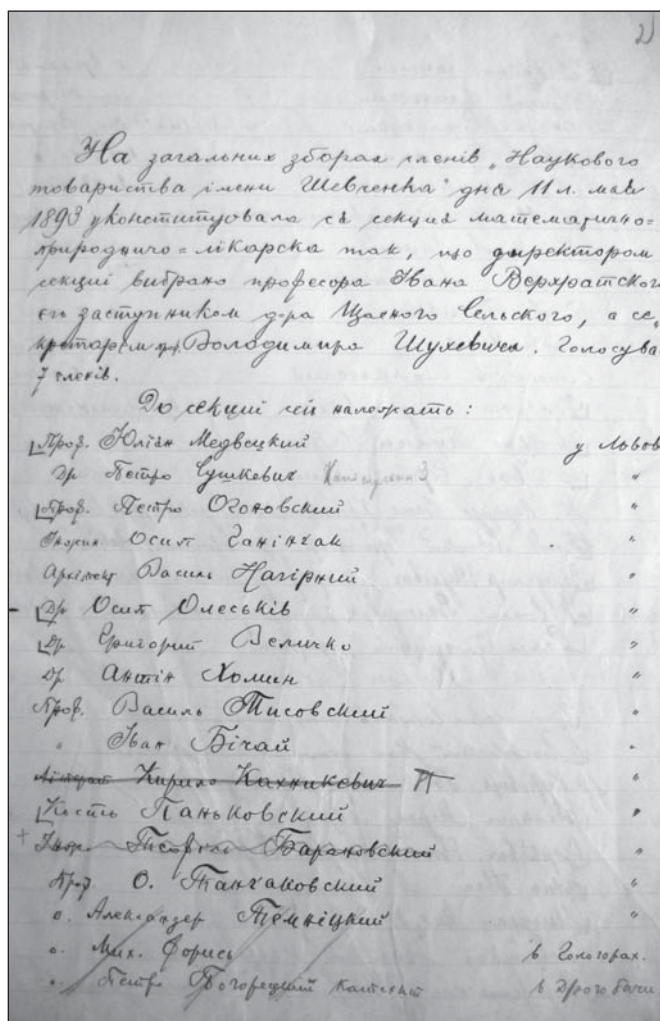 2)
На загальних зборах членів „Наукового
товариства імени Шевченка" дня 11 л. мая
1893 уконституовала ся секция математично=
природничо=лікарска так, що директором
секциї вибрано професора Івана Верхратского
его заступником д-ра Щасного Сельского, а се„
кретарем Володимира Шухевича. Голосува
7 членів.
До секциї сеї належать:
Проф. Юліан Медвецкий у Львов
Др Петро Сушкевич "
Проф. Петро Огоновский "
Инжин Осип Ганінчак "
Архітект Василь Нагірний "
Др Осип Олеськів "
Др Григорий Величко "
Др Антін Хомин "
Проф. Василь Тисовский "
" Іван Бічай "
Кирило Кахникевич "
Кость Паньковский "
Инж. Теофиль Барановский "
Проф О. Танчаковский "
о. Александер Темницкий "
о. Мих. Форись в Гологорах.
о. Петро Погорецкий катехит в Дрогобичи